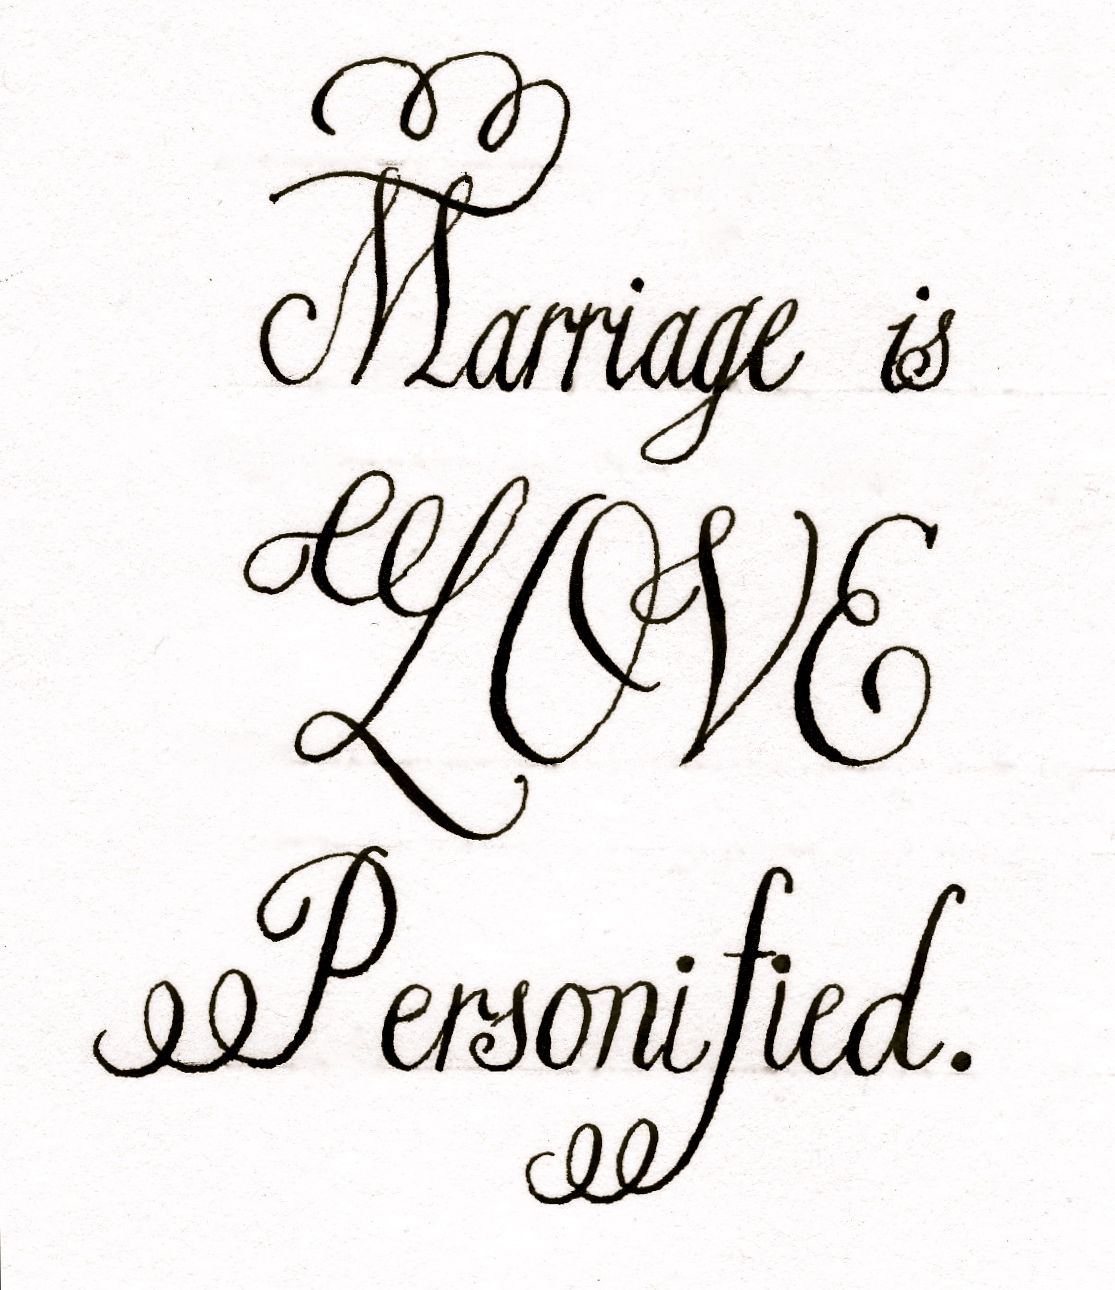 Marriage is
LOVE
Personified.